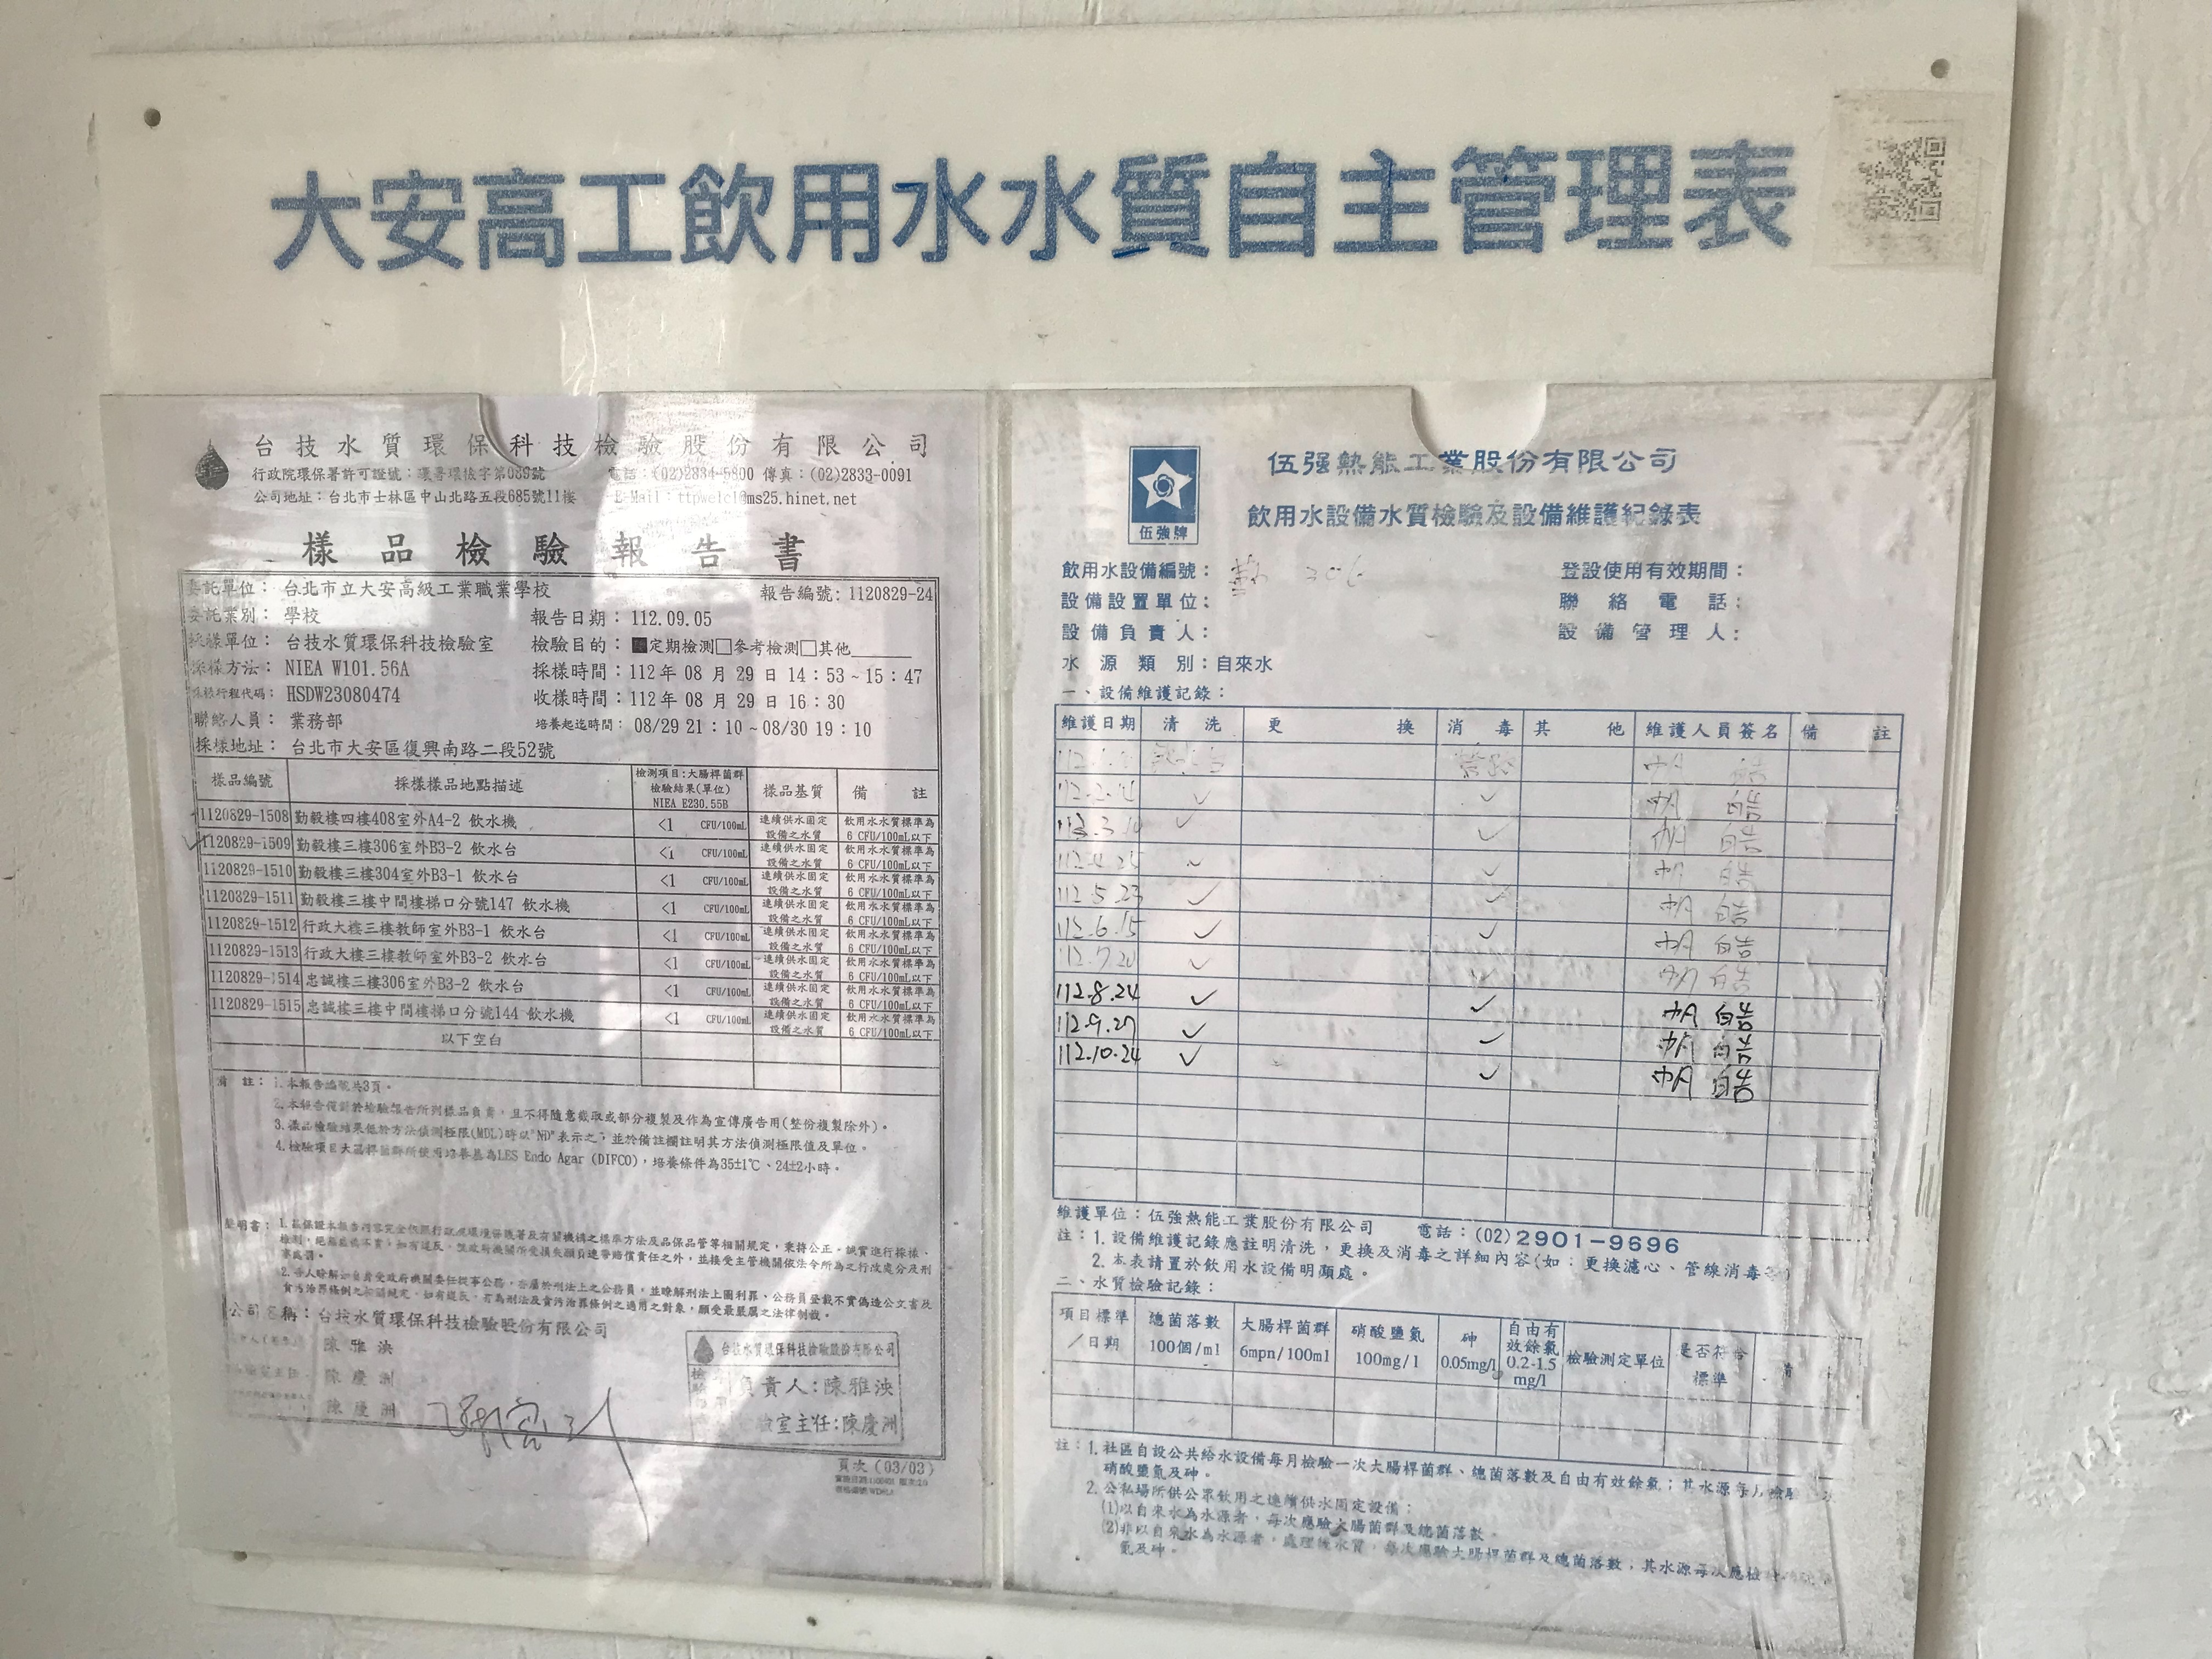 大安高工飲用水水質自主管理表
台技水質環保科技檢驗股份有限公司
行政院環保署許可證號：環署環檢字第039號 電話：(02)2834-5800 傳真：(02)2833-0091
公司地址：台北市士林區中山北路五段685號11樓 E-Mail：ttpwetcl@ms25.hinet.net
樣品檢驗報告書
委託單位：台北市立大安高級工業職業學校 報告編號：1120829-24
委託業別：學校 報告日期：112.09.05
採樣單位：台技水質環保科技檢驗室 檢驗目的：■定期檢測□參考檢測□其他
採樣方法：NIEA W101.56A 採樣時間：112年 08 月 29 日 14：53~15：47
採樣行程代碼：HSDW23080474 收樣時間：112年 08 月 29 日 16：30
聯絡人員：業務部 培養起迄時間：08/29 21：10~08/30 19：10
採樣地址：台北市大安區復興南路二段52號
樣品編號 採樣樣品地點描述 檢測項目:大腸桿菌群 檢驗結果(單位) NIEA E230.55B 樣品基質 備註
1120829-1508 勤毅樓四樓408室外A4-2 飲水機 <1 CFU/100mL 連續供水固定設備之水質 飲用水水質標準為6 CFU/100mL以下
1120829-1509 勤毅樓三樓306室外B3-2 飲水台 <1 CFU/100mL 連續供水固定設備之水質 飲用水水質標準為6 CFU/100mL以下
1120829-1510 勤毅樓三樓304室外B3-1 飲水台 <1 CFU/100mL 連續供水固定設備之水質 飲用水水質標準為6 CFU/100mL以下
1120829-1511 勤毅樓三樓中間樓梯口分號147 飲水機 <1 CFU/100mL 連續供水固定設備之水質 飲用水水質標準為6 CFU/100mL以下
1120829-1512 行政大樓三樓教師室外B3-1 飲水台 <1 CFU/100mL 連續供水固定設備之水質 飲用水水質標準為6 CFU/100mL以下
1120829-1513 行政大樓三樓教師室外B3-2 飲水台 <1 CFU/100mL 連續供水固定設備之水質 飲用水水質標準為6 CFU/100mL以下
1120829-1514 忠誠樓三樓306室外B3-2 飲水台 <1 CFU/100mL 連續供水固定設備之水質 飲用水水質標準為6 CFU/100mL以下
1120829-1515 忠誠樓三樓中間樓梯口分號144 飲水機 <1 CFU/100mL 連續供水固定設備之水質 飲用水水質標準為6 CFU/100mL以下
以下空白
備 註：1.本報告編號共3頁。
2.本報告僅對於檢驗報告所列樣品負責，且不得隨意截取或部分複製及作為宣傳廣告用(整份複製除外)。
3.樣品檢驗結果低於方法偵測極限(MDL)時以"ND"表示之，並於備註欄註明其方法偵測極限值及單位。
4.檢驗項目大腸桿菌群所使用培養基為LES Endo Agar (DIFCO)，培養條件為35±1℃、24±2小時。
聲明書：1.茲保證本報告內容完全依照行政院環境保護署及有關機構之標準方法及品保品管等相關規定，秉持公正、誠實進行採樣、
檢測，絕無虛偽不實，如有違反，就政府機關所受損失願負連帶賠償責任之外，並接受主管機關依法令所為之行政處分及刑
事處罰。
2.吾人瞭解如自身受政府機關委任從事公務，亦屬於刑法上之公務員，並瞭解刑法上圖利罪、公務員登載不實偽造公文書及
貪污治罪條例之相關規定，如有違反，亦為刑法及貪污治罪條例之適用之對象，願受最嚴厲之法律制裁。
公司名稱：台技水質環保科技檢驗股份有限公司
陳雅泱
陳慶洲
陳慶洲
台技水質環保科技檢驗股份有限公司
負責人：陳雅泱
檢驗室主任：陳慶洲
頁次 (03/03)
伍強牌
伍强熱能工業股份有限公司
飲用水設備水質檢驗及設備維護紀錄表
飲用水設備編號： 登設使用有效期間：
設備設置單位： 聯絡電話：
設備負責人： 設備管理人：
水源類別：自來水
一、設備維護記錄：
維護日期 清洗 更換 消毒 其他 維護人員簽名 備註
112.5.23 ✓ ✓
112.6.15 ✓ ✓
112.7.20 ✓ ✓
112.8.24 ✓ ✓
112.9.27 ✓ ✓
112.10.24 ✓ ✓
維護單位：伍強熱能工業股份有限公司 電話：(02)2901-9696
註：1. 設備維護記錄應註明清洗，更換及消毒之詳細內容(如：更換濾心、管線消毒等)
2. 本表請置於飲用水設備明顯處。
二、水質檢驗記錄：
項目標準／日期 總菌落數 100個/ml 大腸桿菌群 6mpn/100ml 硝酸鹽氮 100mg/l 砷 0.05mg/l 自由有效餘氯 0.2-1.5 mg/l 檢驗測定單位 是否符合標準 備
註：1. 社區自設公共給水設備每月檢驗一次大腸桿菌群、總菌落數及自由有效餘氯；其水源每
硝酸鹽氮及砷。
2. 公私場所供公眾飲用之連續供水固定設備：
(1)以自來水為水源者，每次應驗大腸菌群及總菌落數。
(2)非以自來水為水源者，處理後水質，每次應驗大腸桿菌群及總菌落數；其水源每次應檢
氮及砷。